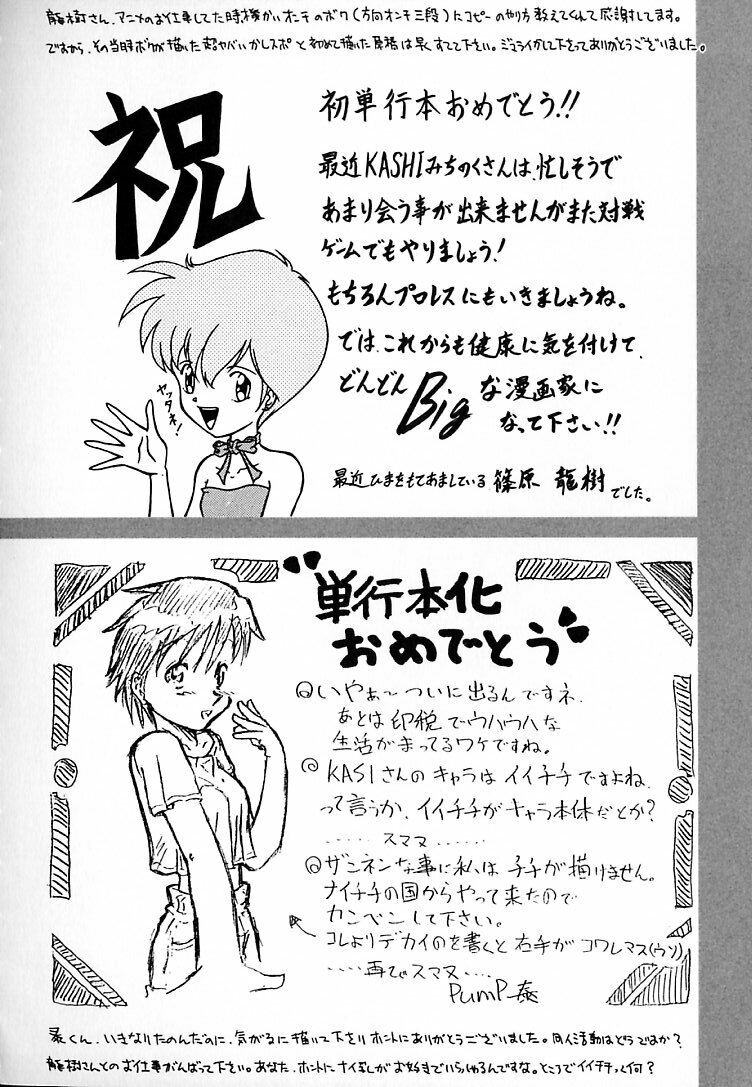 龍樹さん、アニメのお仕事してた時機かいオンチのボク(方向オンチ三段)にコピーのやり方教えてくれて感謝してます。
ですから、その当時ボクが描いた超ヤバいかしスポと初めて描いた原稿は早くすてて下さい。ジュライかして下さってありがとうございました。
祝
初単行本おめでとう!!
最近KASHIみちのくさんは、忙しそうで
あまり会う事が出来ませんがまた対戦
ゲームでもやりましょう!
もちろんプロレスにもいきましょうね。
では、これからも健康に気を付けて、
どんどんBigな漫画家に
なって下さい!!
ヤッタネ!
最近ひまをもてあましている 篠原 龍樹でした。
単行本化
おめでとう
いやぁ~ついに出るんですネ
あとは印税でウハウハな
生活がまってるワケですね。
KASIさんのキャラはイイチチですよね、
って言うか、イイチチがキャラ本体だとか?
……スマヌ……
ザンネンな事に私は チチが描けません。
ナイチチの国からやって来たので
カンベンして下さい。
コレよりデカイのを書くと右手がコワレマス(ウソ)
……再びスマヌ……
PUMP
くん、いきなりたのんだのに、気がるに描いて下さりホントにありがとうございました。同人活動はどうですか?
龍樹さんとのお仕事がんばって下さい。あなた、ホントにナイ乳がお好きでいらっしゃるんですな。ところでイイチチって何?